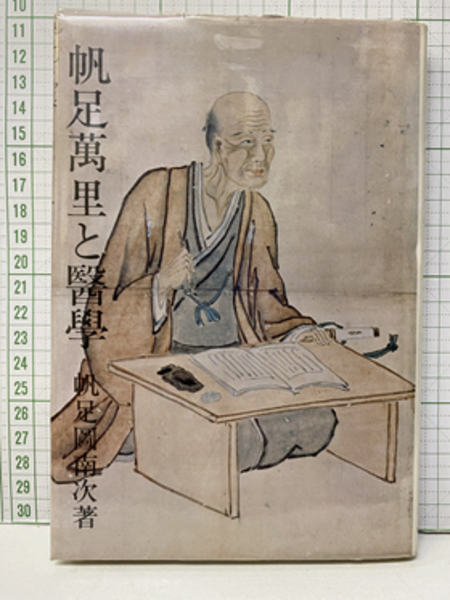 帆足萬里と醫學
帆足圖南次著
10
11
12
13
14
15
16
17
18
19
20
21
22
23
24
25
26
27
28
29
30